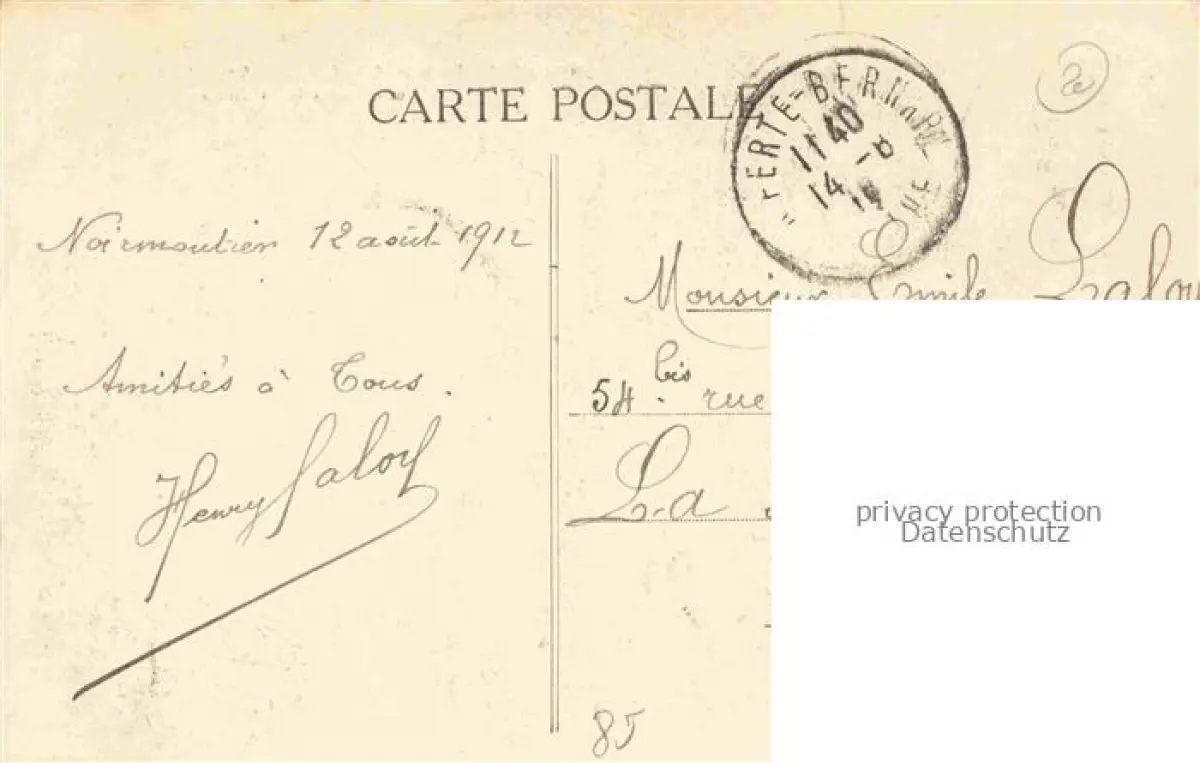 CARTE POSTALE
FERTE-BERNARD
11 40
14
Noirmoutier 12 août 1912
Amitiés à Tous.
Henry Laloy
Monsieur Emile Laloy
54 bis rue
La
privacy protection
Datenschutz
85